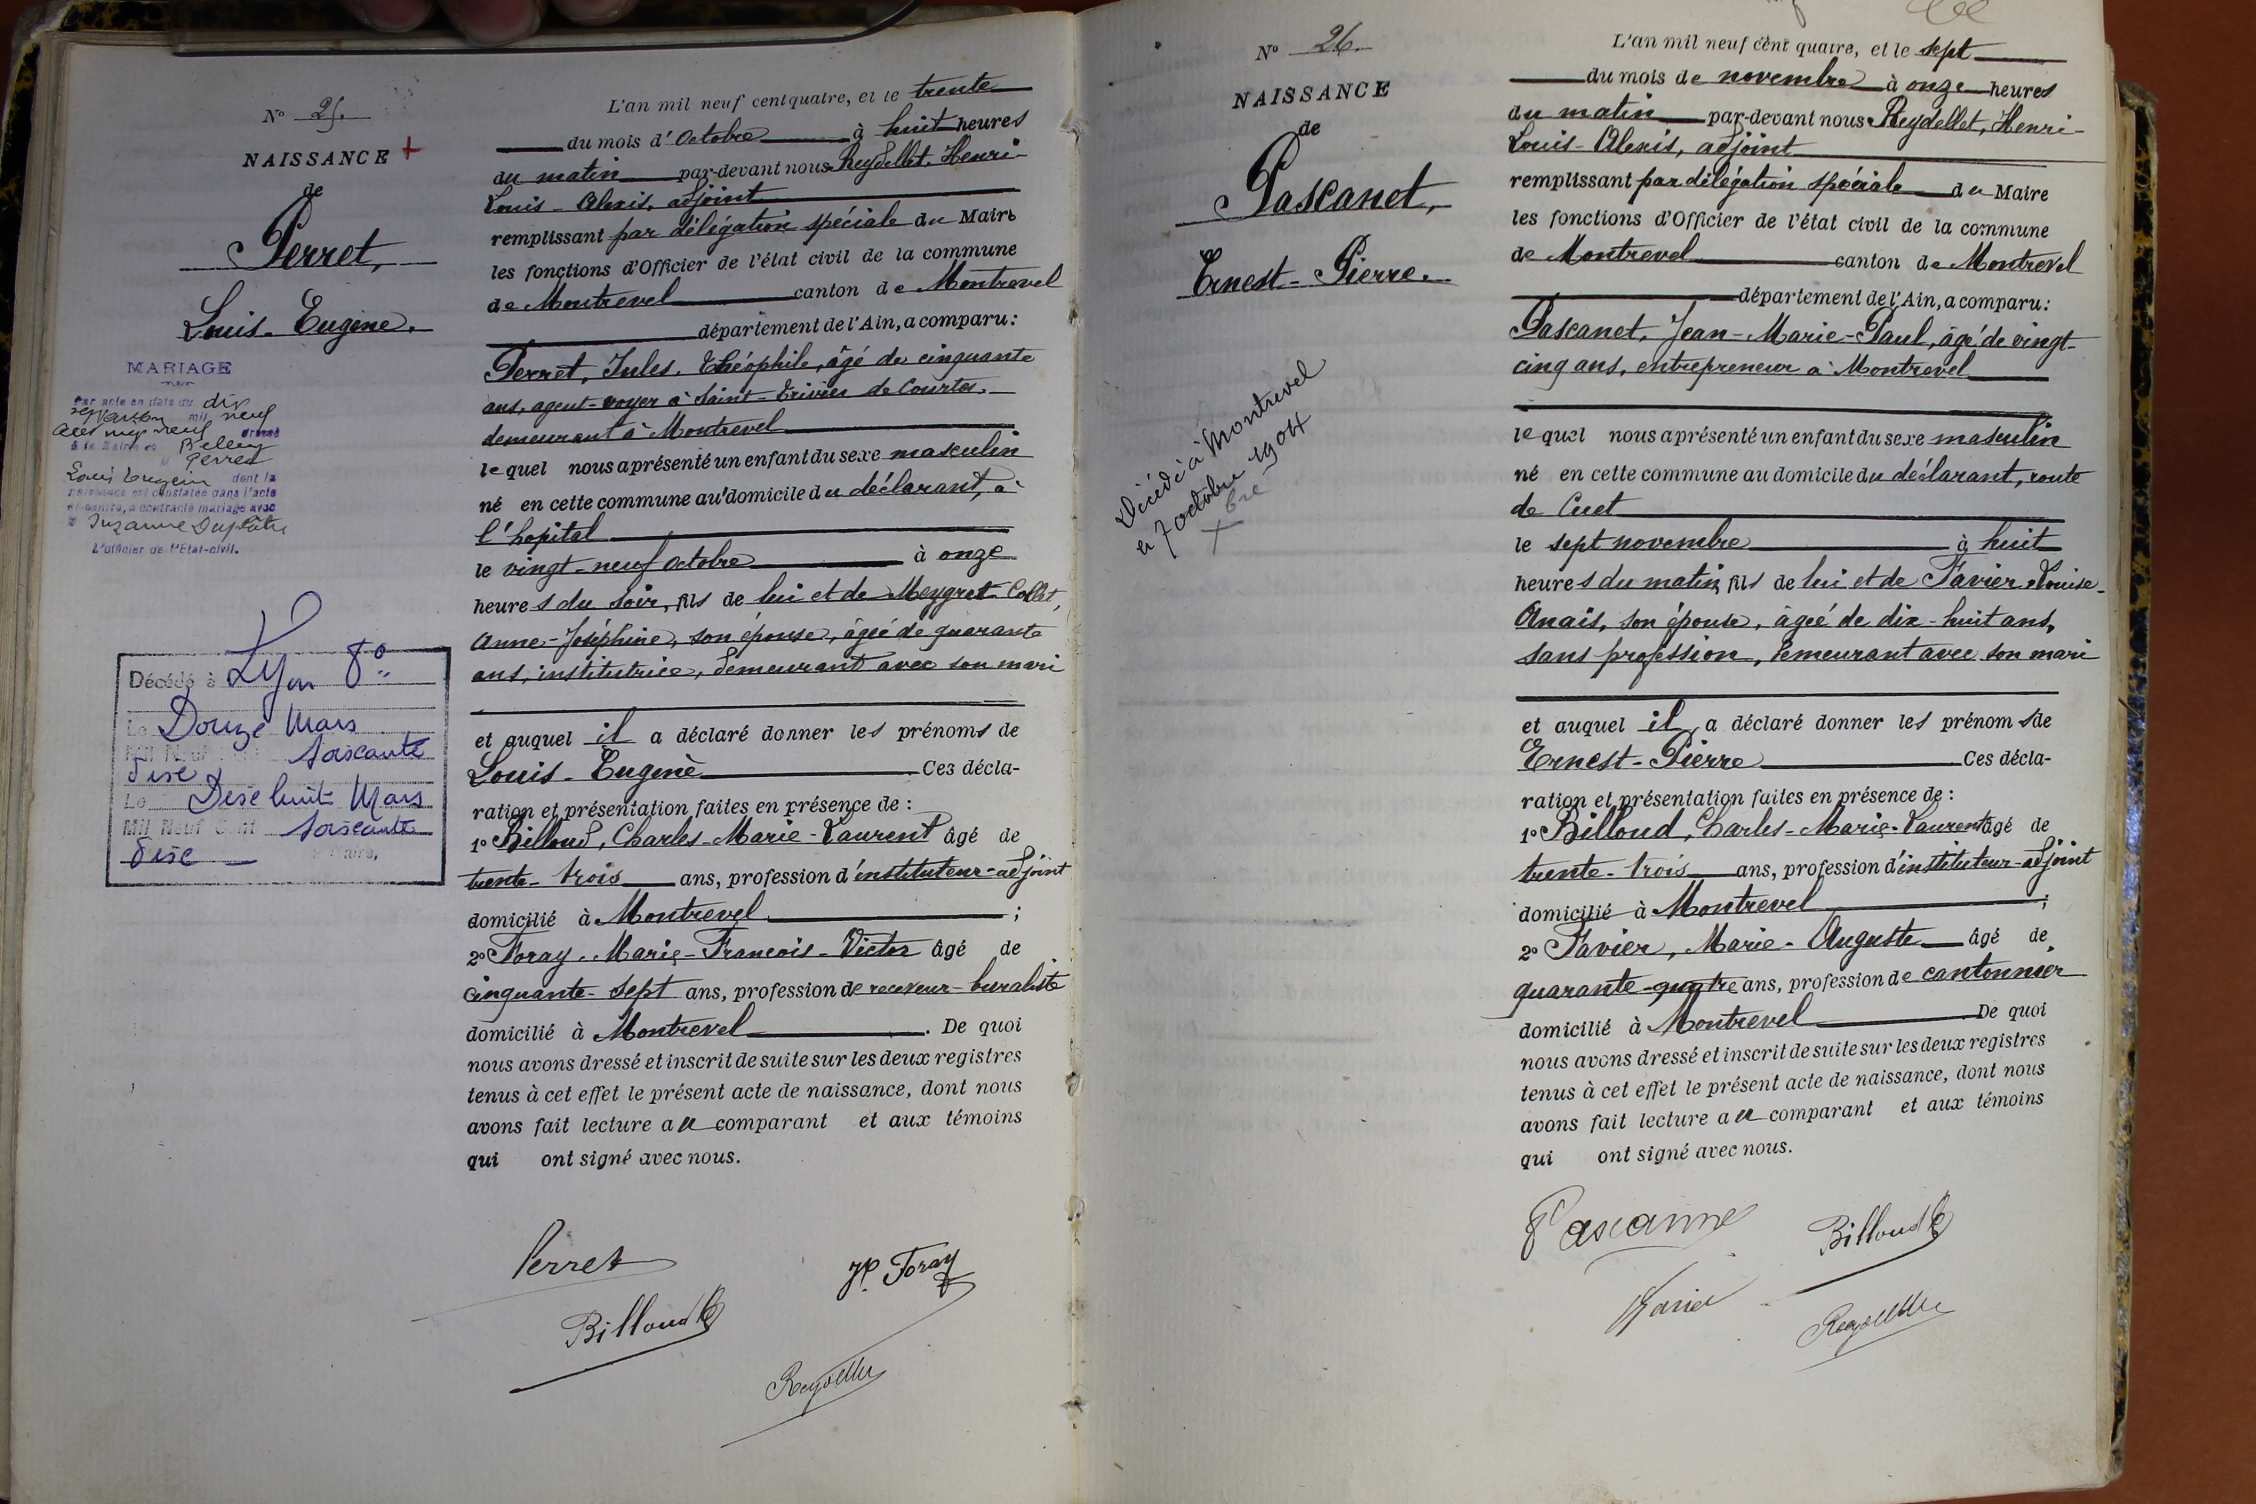 N° 25.
NAISSANCE +
de
Perret,
Louis-Eugène.
MARIAGE
Par acte en date du dix
mil neuf
cent neuf dressé
à la Mairie de Belley
Perret
Louis Eugène dont la
naissance est constatée dans l'acte
ci-contre, a contracté mariage avec
Suzanne
L'officier de l'Etat-civil.
Décédé à Lyon 8°
Le Douze Mars
Mil Neuf Cent soixante
dise
Le Dise huit Mars
Mil Neuf Cent soixante
dise Maire,
L'an mil neuf cent quatre, et le trente
du mois d'octobre à huit heures
du matin par-devant nous Reydellet, Henri-
Louis-Alexis, adjoint
remplissant par délégation spéciale du Maire
les fonctions d'Officier de l'état civil de la commune
de Montrevel canton de Montrevel
département de l'Ain, a comparu:
Perret, Jules, Théophile, âgé de cinquante
ans, agent-voyer à Saint-Trivier de Courtes,
demeurant à Montrevel
lequel nous a présenté un enfant du sexe masculin
né en cette commune au domicile du déclarant, à
l'hopital
le vingt-neuf octobre à onze
heures du soir, fils de lui et de Meygret-Collet,
Anne-Joséphine, son épouse, âgée de quarante
ans, institutrice, demeurant avec son mari
et auquel il a déclaré donner les prénoms de
Louis-Eugène Ces décla-
ration et présentation faites en présence de :
1° Billoud, Charles-Marie-Laurent âgé de
trente-trois ans, profession d'instituteur-adjoint
domicilié à Montrevel ;
2° Foray, Marie-François-Victor âgé de
cinquante-sept ans, profession de receveur-buraliste
domicilié à Montrevel . De quoi
nous avons dressé et inscrit de suite sur les deux registres
tenus à cet effet le présent acte de naissance, dont nous
avons fait lecture au comparant et aux témoins
qui ont signé avec nous.
Perret
Foray
Billoud
Reydellet
N° 26.
NAISSANCE
de
Pascanet,
Ernest-Pierre.
Décédé à Montrevel
le 7 octobre 1904
+ bre
L'an mil neuf cent quatre, et le sept
du mois de novembre à onze heures
du matin par-devant nous Reydellet, Henri-
Louis-Alexis, adjoint
remplissant par délégation spéciale du Maire
les fonctions d'Officier de l'état civil de la commune
de Montrevel canton de Montrevel
département de l'Ain, a comparu:
Pascanet, Jean-Marie-Paul, âgé de vingt-
cinq ans, entrepreneur à Montrevel
lequel nous a présenté un enfant du sexe masculin
né en cette commune au domicile du déclarant, route
de Cuet
le sept novembre à huit
heures du matin, fils de lui et de Favier, Louise-
Anaïs, son épouse, âgée de dix-huit ans,
sans profession, demeurant avec son mari
et auquel il a déclaré donner les prénoms de
Ernest-Pierre Ces décla-
ration et présentation faites en présence de :
1° Billoud, Charles-Marie-Laurent âgé de
trente-trois ans, profession d'instituteur-adjoint
domicilié à Montrevel ;
2° Favier, Marie-Auguste âgé de
quarante-quatre ans, profession de cantonnier
domicilié à Montrevel De quoi
nous avons dressé et inscrit de suite sur les deux registres
tenus à cet effet le présent acte de naissance, dont nous
avons fait lecture au comparant et aux témoins
qui ont signé avec nous.
Billoud
Favier
Reydellet